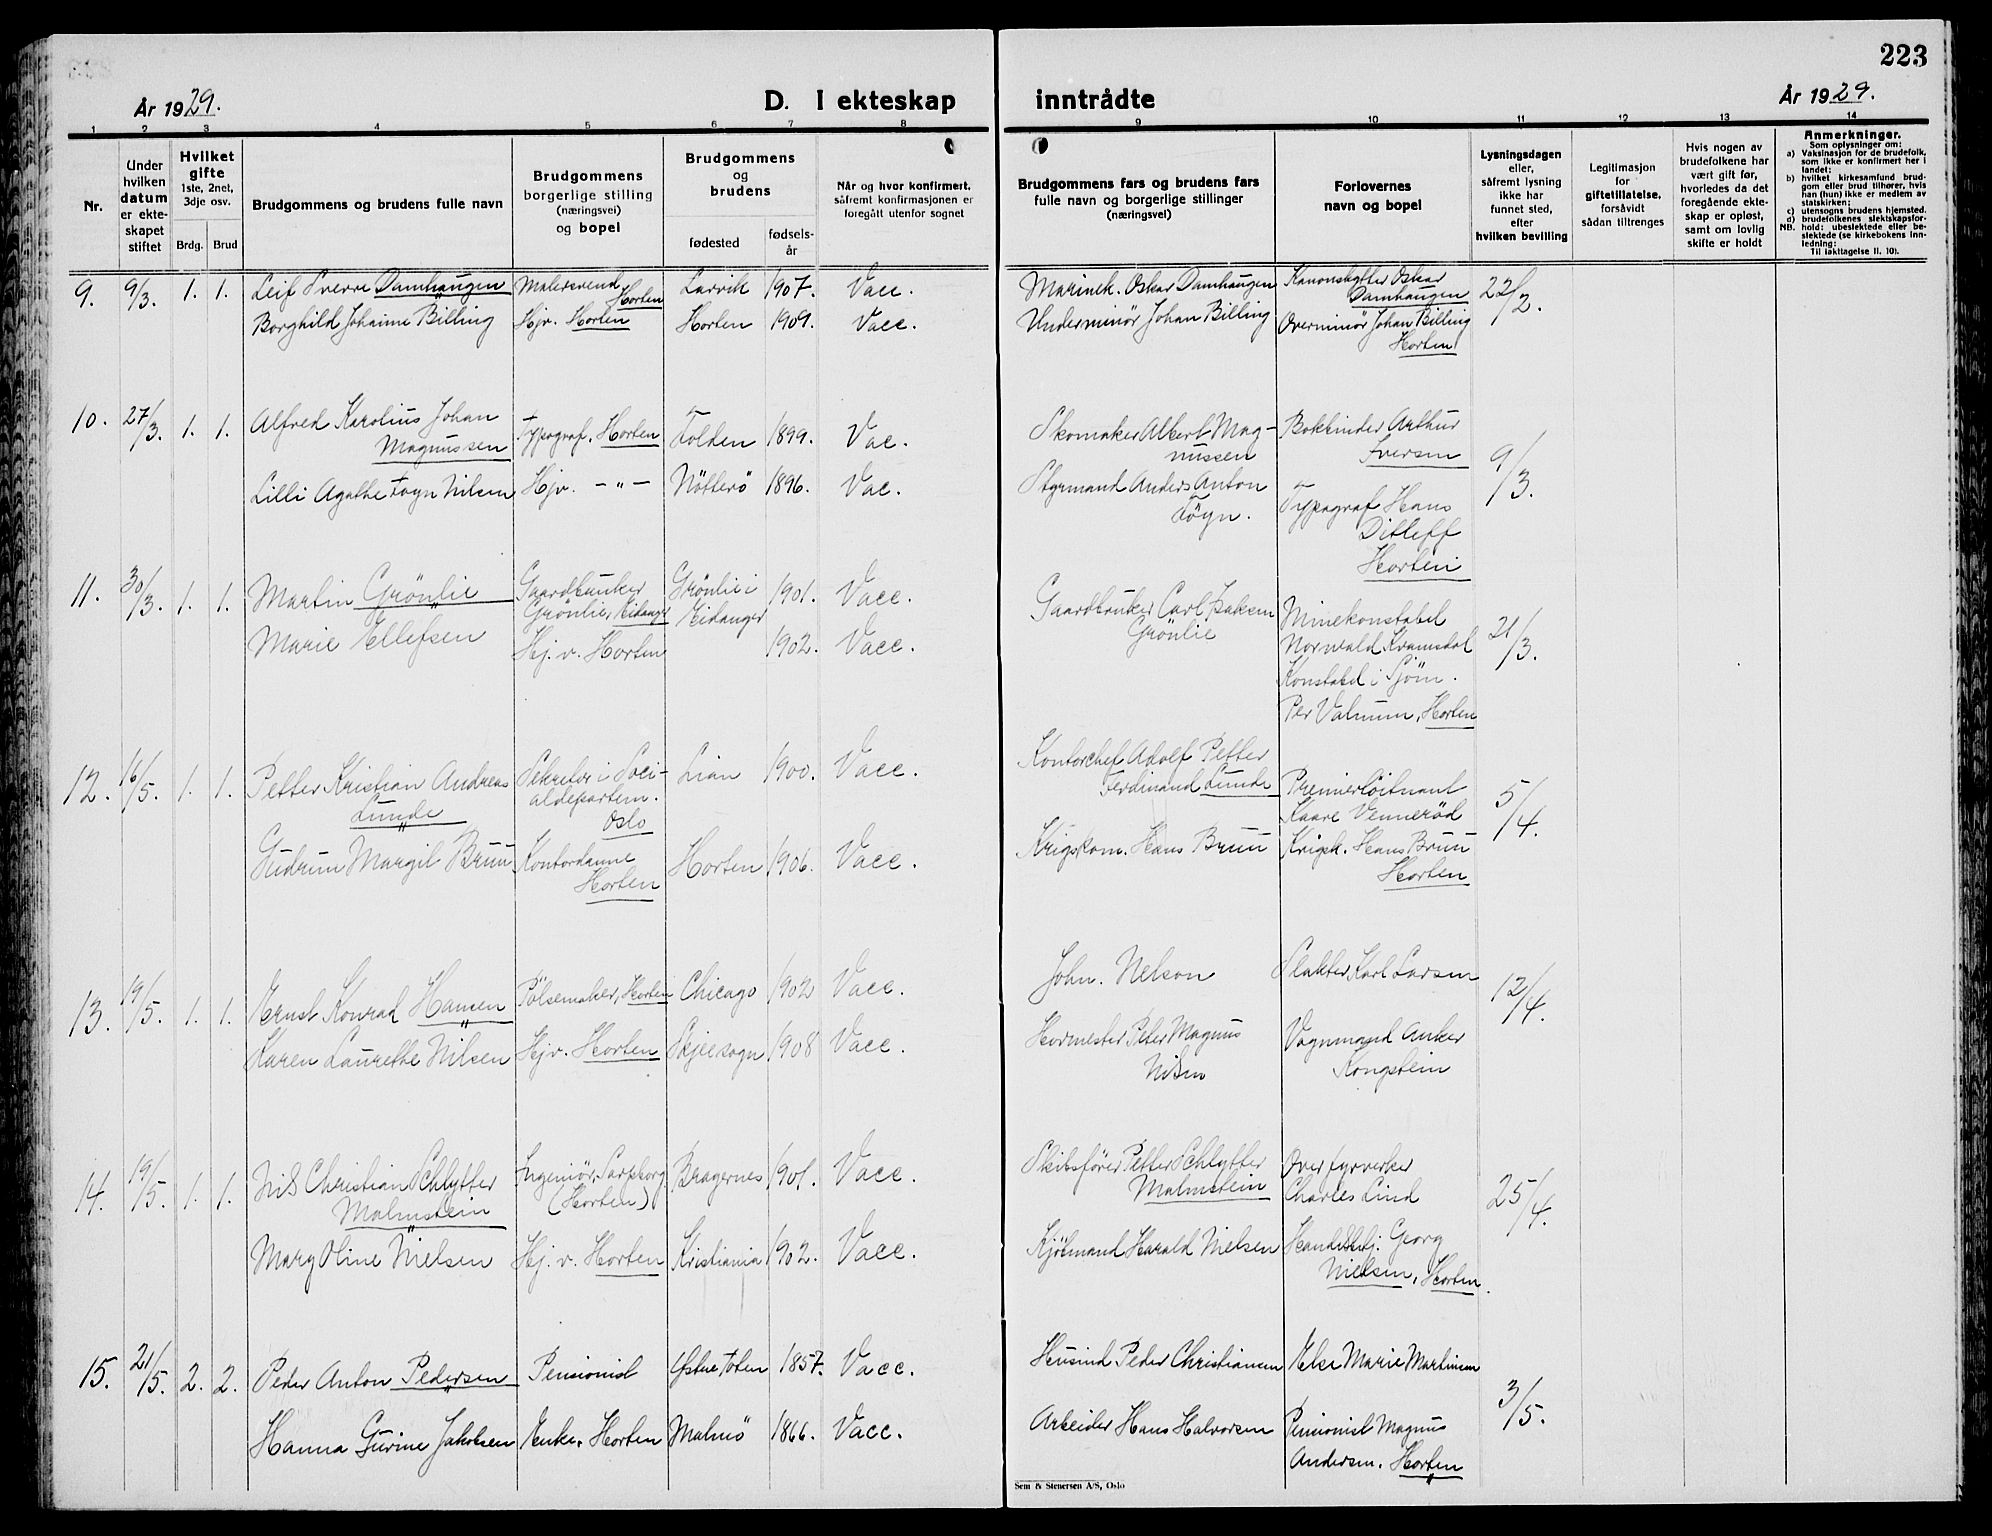 223
År 1929.
D. I ekteskap inntrådte
År 1929.
1 2 3 4 5 6 7 8 9 10 11 12 13 14
Nr.
Under hvilken datum er ekteskapet stiftet
Hvilket gifte
1ste, 2net, 3dje osv.
Brdg. Brud
Brudgommens og brudens fulle navn
Brudgommens borgerlige stilling (næringsvei) og bopel
Brudgommens og brudens
fødested
fødselsår
Når og hvor konfirmert, såfremt konfirmasjonen er foregått utenfor sognet
Brudgommens fars og brudens fars fulle navn og borgerlige stillinger (næringsvei)
Forlovernes navn og bopel
Lysningsdagen eller, såfremt lysning ikke har funnet sted, efter hvilken bevilling
Legitimasjon for giftetillatelse, forsåvidt sådan tiltrenges
Hvis nogen av brudefolkene har vært gift før, hvorledes da det foregående ekteskap er opløst, samt om lovlig skifte er holdt
Anmerkninger.
Som oplysninger om:
a) Vaksinasjon for de brudefolk, som ikke er konfirmert her i landet;
b) hvilket kirkesamfund brudgom eller brud tilhører, hvis han (hun) ikke er medlem av statskirken;
c) utensogns brudens hjemsted.
d) brudefolkenes slektskapsforhold: ubeslektede eller beslektede (se kirkebokens innledning:
NB.
Til iakttagelse II. 10).
9. 9/3. 1. 1. Leif Sverre Damhaugen Malersvend Horten Larvik 1907. Vacc. Marinek. Oskar Damhaugen Kanonskytter Oskar Damhaugen 22/2.
Borghild Johanne Billing Hjv. Horten Horten 1909. Vacc. Underminör Johan Billing Overminör Johan Billing
Horten
10. 27/3. 1. 1. Alfred Karolius Johan Magnussen Typograf. Horten Folden 1899. Vac. Skomaker Albert Magnussen Bokbinder Arthur Iversen 9/3.
Lilli Agathe Föyn Nilsen Hjv. -"- Nötterö 1896. Vac. Styrmand Anders Anton Föyn. Typograf Hans Ditleff
Horten
11. 30/3. 1. 1. Martin Grönlie Gaardbruker Grönlie, Eidanger Grönlie i Eidanger 1901. Vacc. Gaardbruker Carl Isaksen Grönlie Minekonstabel Norwald Kvamsdal 21/3.
Marie Ellefsen Hj.v. Horten 1902. Vacc. Konstabel i Sjöm.
Per Valmum, Horten
12. 16/5. 1. 1. Petter Kristian Andreas Lunde Sekretær i Socialdepartem. Oslo Lian 1900. Vacc. Kontorchef Adolf Petter Ferdinand Lunde Premierlöitnant Kaare Venneröd 5/4.
Gudrun Margit Bruu Kontordame Horten Horten 1906. Vacc. Krigskom. Hans Bruu Krigsk. Hans Bruu
Horten
13. 19/5. 1. 1. Ernst Konrad Hansen Pölsemaker, Horten Chicago 1902 Vacc. John. Nelson Slakter Karl Larsen 12/4.
Karen Laurethe Nilsen Hjv. Horten Skjeesogn 1908 Vacc. Havnmester Peter Magnus Nilsen Vognmand Anker Kongstein
14. 19/5. 1. 1. Nils Christian Schlytter Malmstein Ingeniör, Sarpsborg (Horten) Bragernes 1901. Vacc. Skibsförer Petter Schlytter Malmstein Overfyrverker Charles Lind 25/4.
Mary Oline Nielsen Hj.v. Horten Kristiania 1902. Vacc. Kjötmand Harald Nielsen Handelsbetj. Georg
Nielsen, Horten.
15. 21/5. 2. 2. Peder Anton Pedersen Pensionist Østre Toten 1857. Vacc. Husmd Peder Christiansen Else Marie Martinsen 3/5.
Hanna Gurine Jakobsen Enke. Horten Malmö 1866. Vacc. Arbeider Hans Halvorsen Pensionist Magnus
Andersen. Horten
Sem & Stenersen A/S, Oslo